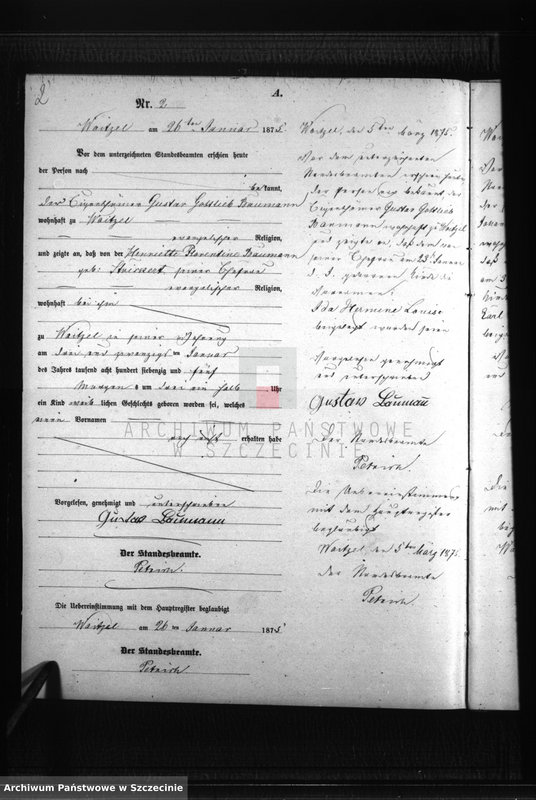 2
A.
Nr. 2
Waitzel am 26ten Januar 1875
Vor dem unterzeichneten Standesbeamten erschien heute
der Person nach
bekannt,
der Eigenthümer Gustav Gottlieb Baumann
wohnhaft zu Waitzel
evangelischer Religion,
und zeigte an, daß von der Henriette Florentine Baumann
geb: seiner Ehefrau
evangelischer Religion,
wohnhaft bei ihm
zu Waitzel in seiner Wohnung
am drei und zwanzigsten Januar
des Jahres tausend acht hundert siebenzig und fünf
Morgens um drei ein halb Uhr
ein Kind weiblichen Geschlechts geboren worden sei, welches
Vornamen
noch nicht erhalten habe
Vorgelesen, genehmigt und unterschrieben
Gustav Baumann
Der Standesbeamte.
Petrich.
Die Uebereinstimmung mit dem Hauptregister beglaubigt
Waitzel am 26ten Januar 1875
Der Standesbeamte.
Petrich
Waitzel, den 5ten März 1875.
Vor dem unterzeichneten
Standesbeamten erschien heute,
der Person nach bekannt der
Eigenthümer Gustav Gottlieb
Baumann wohnhaft zu Waitzel
und zeigte an, daß dem von
seiner Ehefrau am 23 Januar
d. J. geborenen Kinde die
Vornamen:
Ida Hermine Louise
beigelegt worden seien
Vorgelesen genehmigt
und unterschrieben
Gustav Baumann
Der Standesbeamte
Petrich.
Die Uebereinstimmung
mit dem Hauptregister
beglaubigt
Waitzel, den 5ten März 1875.
Der Standesbeamte
Petrich.
ARCHIWUM PAŃSTWOWE
W SZCZECINIE
Archiwum Państwowe w Szczecinie